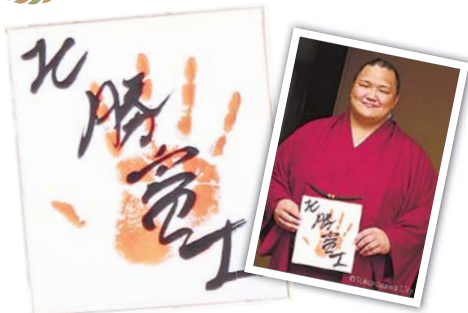 北勝富士
北勝富士
©Tokorozawa City